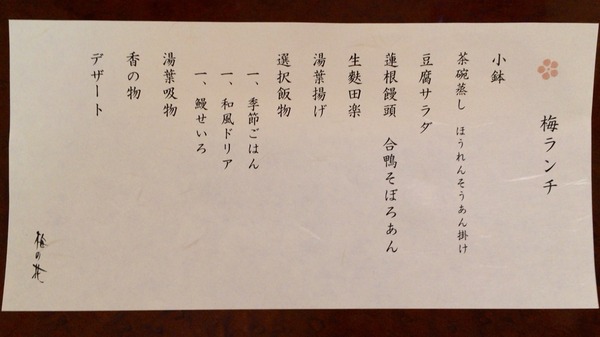 梅ランチ
小鉢
茶碗蒸し ほうれんそうあん掛け
豆腐サラダ
蓮根饅頭 合鴨そぼろあん
生麩田楽
湯葉揚げ
選択飯物
一、季節ごはん
一、和風ドリア
一、鰻せいろ
湯葉吸物
香の物
デザート
梅の花